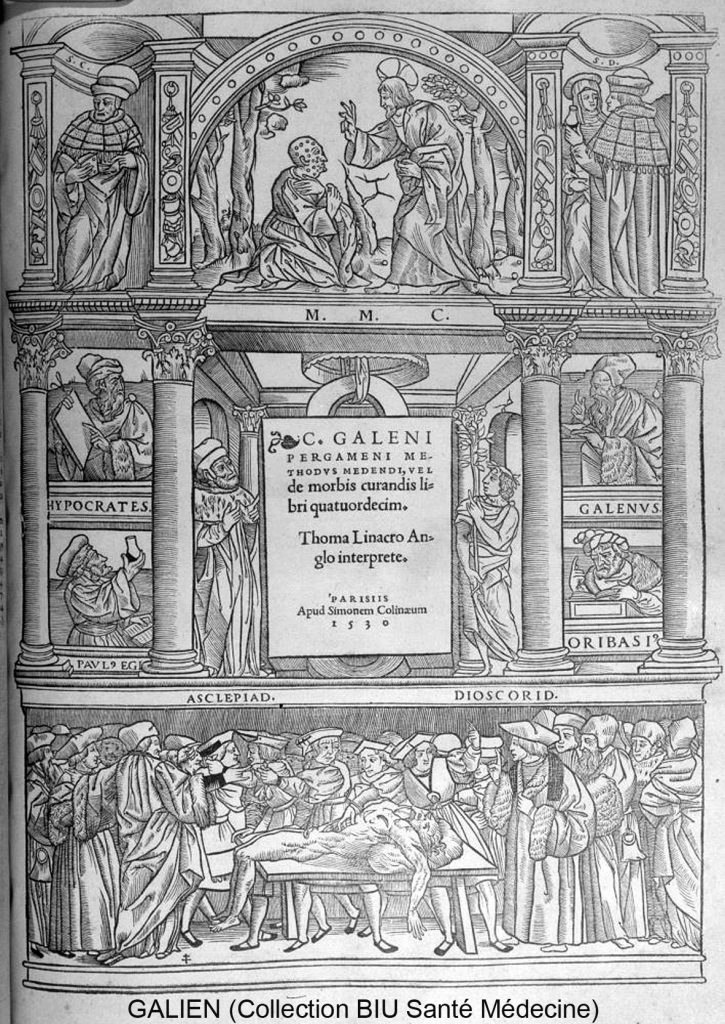 S. C.
S. D.
M. M. C.
C. GALENI
PERGAMENI ME-
THODVS MEDENDI, VEL
de morbis curandis li-
bri quatuordecim.
Thoma Linacro An-
glo interprete.
PARISIIS
Apud Simonem Colinæum
1530
HYPOCRATES
GALENVS
PAVLꝰ EGI
ORIBASIꝰ
ASCLEPIAD.
DIOSCORID.
GALIEN (Collection BIU Santé Médecine)